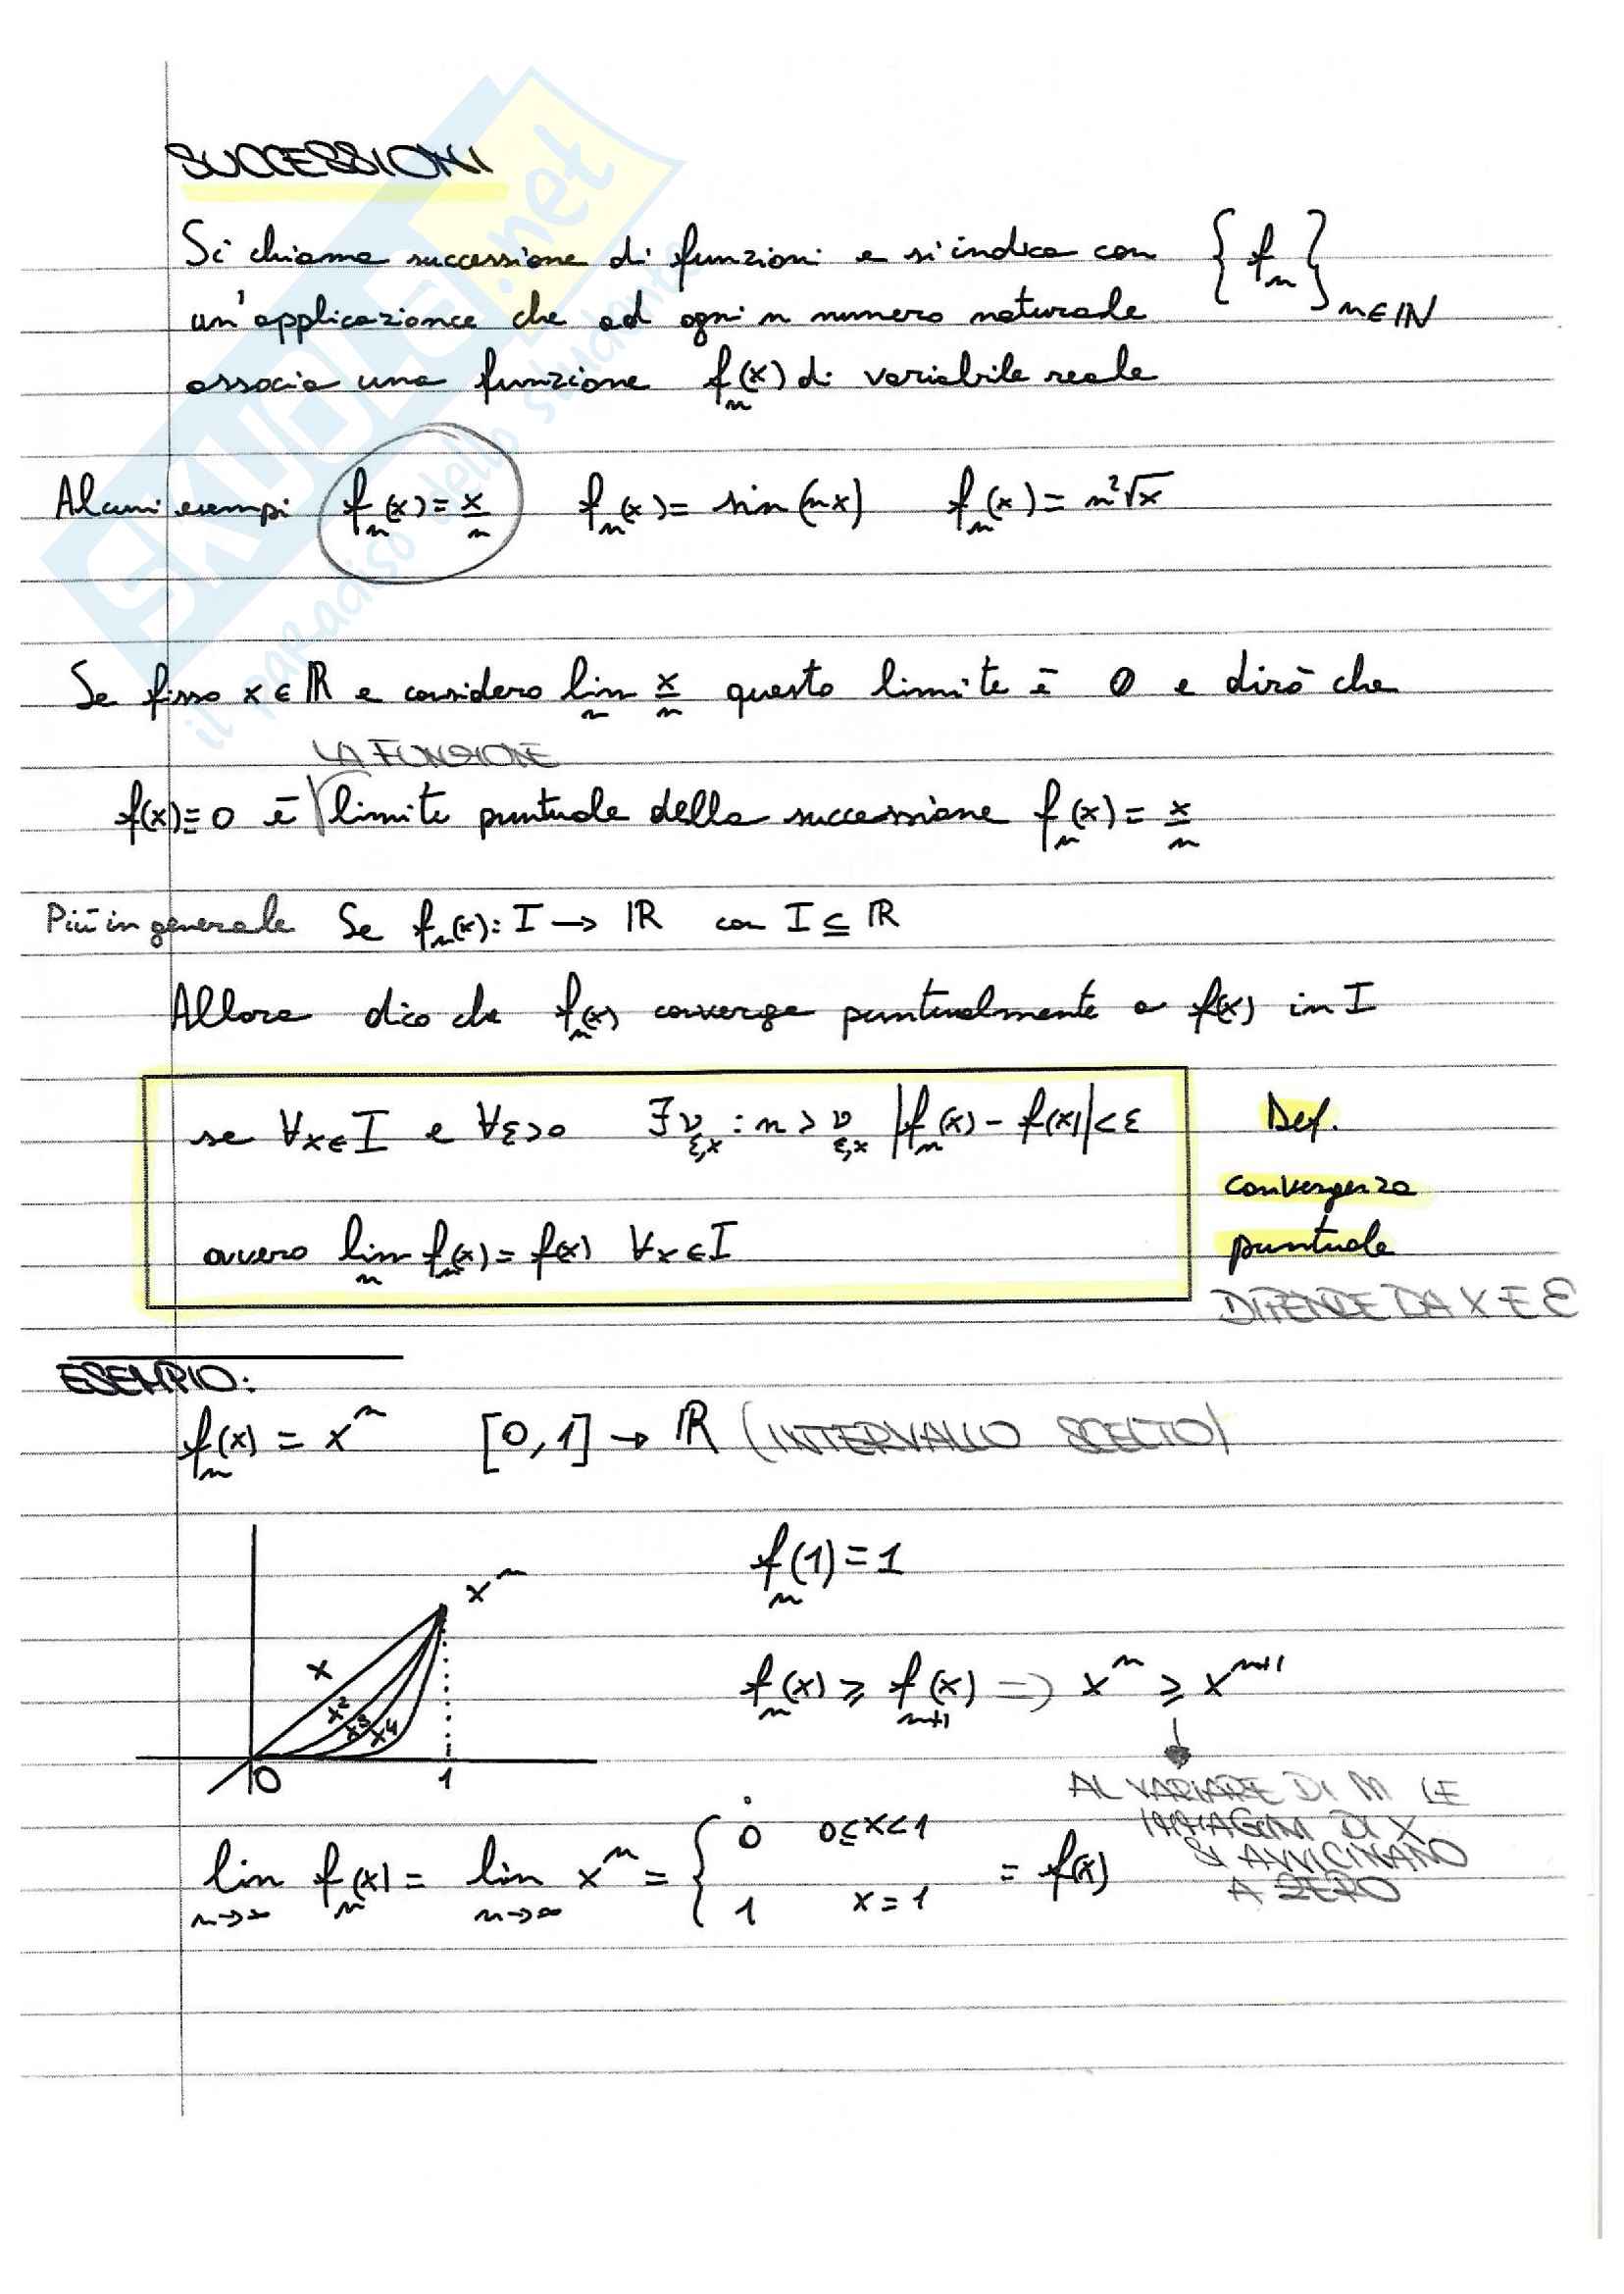 SUCCESSIONI
Si chiama successione di funzioni e si indica con {f_n}_{n∈ℕ}
un'applicazione che ad ogni n numero naturale
associa una funzione f_n(x) di variabile reale
Alcuni esempi f_n(x) = x/n f_n(x) = sin(nx) f_n(x) = n²√x
Se fisso x ∈ ℝ e considero lim_n x/n questo limite è 0 e dirò che
LA FUNZIONE
f(x) ≡ 0 è limite puntuale della successione f_n(x) = x/n
Più in generale Se f_n(x): I → ℝ con I ⊆ ℝ
Allora dico che f_n(x) converge puntualmente a f(x) in I
se ∀x∈I e ∀ε>0 ∃ν_{ε,x} : n > ν_{ε,x} |f_n(x) - f(x)| < ε
Def.
convergenza
ovvero lim_n f_n(x) = f(x) ∀x∈I
puntuale
DIPENDE DA X E ε
ESEMPIO:
f_n(x) = x^n [0,1] → ℝ (INTERVALLO SCELTO)
f_n(1) = 1
x^n
x
x²
x³
x⁴
0 1
f_n(x) ≥ f_{n+1}(x) => x^n ≥ x^{n+1}
AL VARIARE DI n LE
IMMAGINI DI X
SI AVVICINANO
A ZERO
lim_{n→∞} f_n(x) = lim_{n→∞} x^n = { 0 0≤x<1
1 x=1 = f(x)
SKUOLA.net
il paradiso dello studente